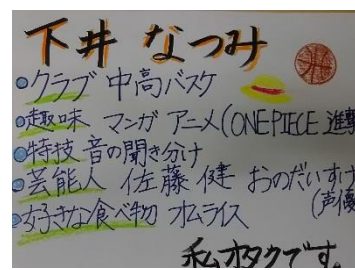 下井 なつみ
クラブ 中高バスケ
趣味 マンガ アニメ(ONE PIECE 進撃
特技 音の聞き分け
芸能人 佐藤 健 おのだいすけ
(声優
好きな食べ物 オムライス
私オタクです。